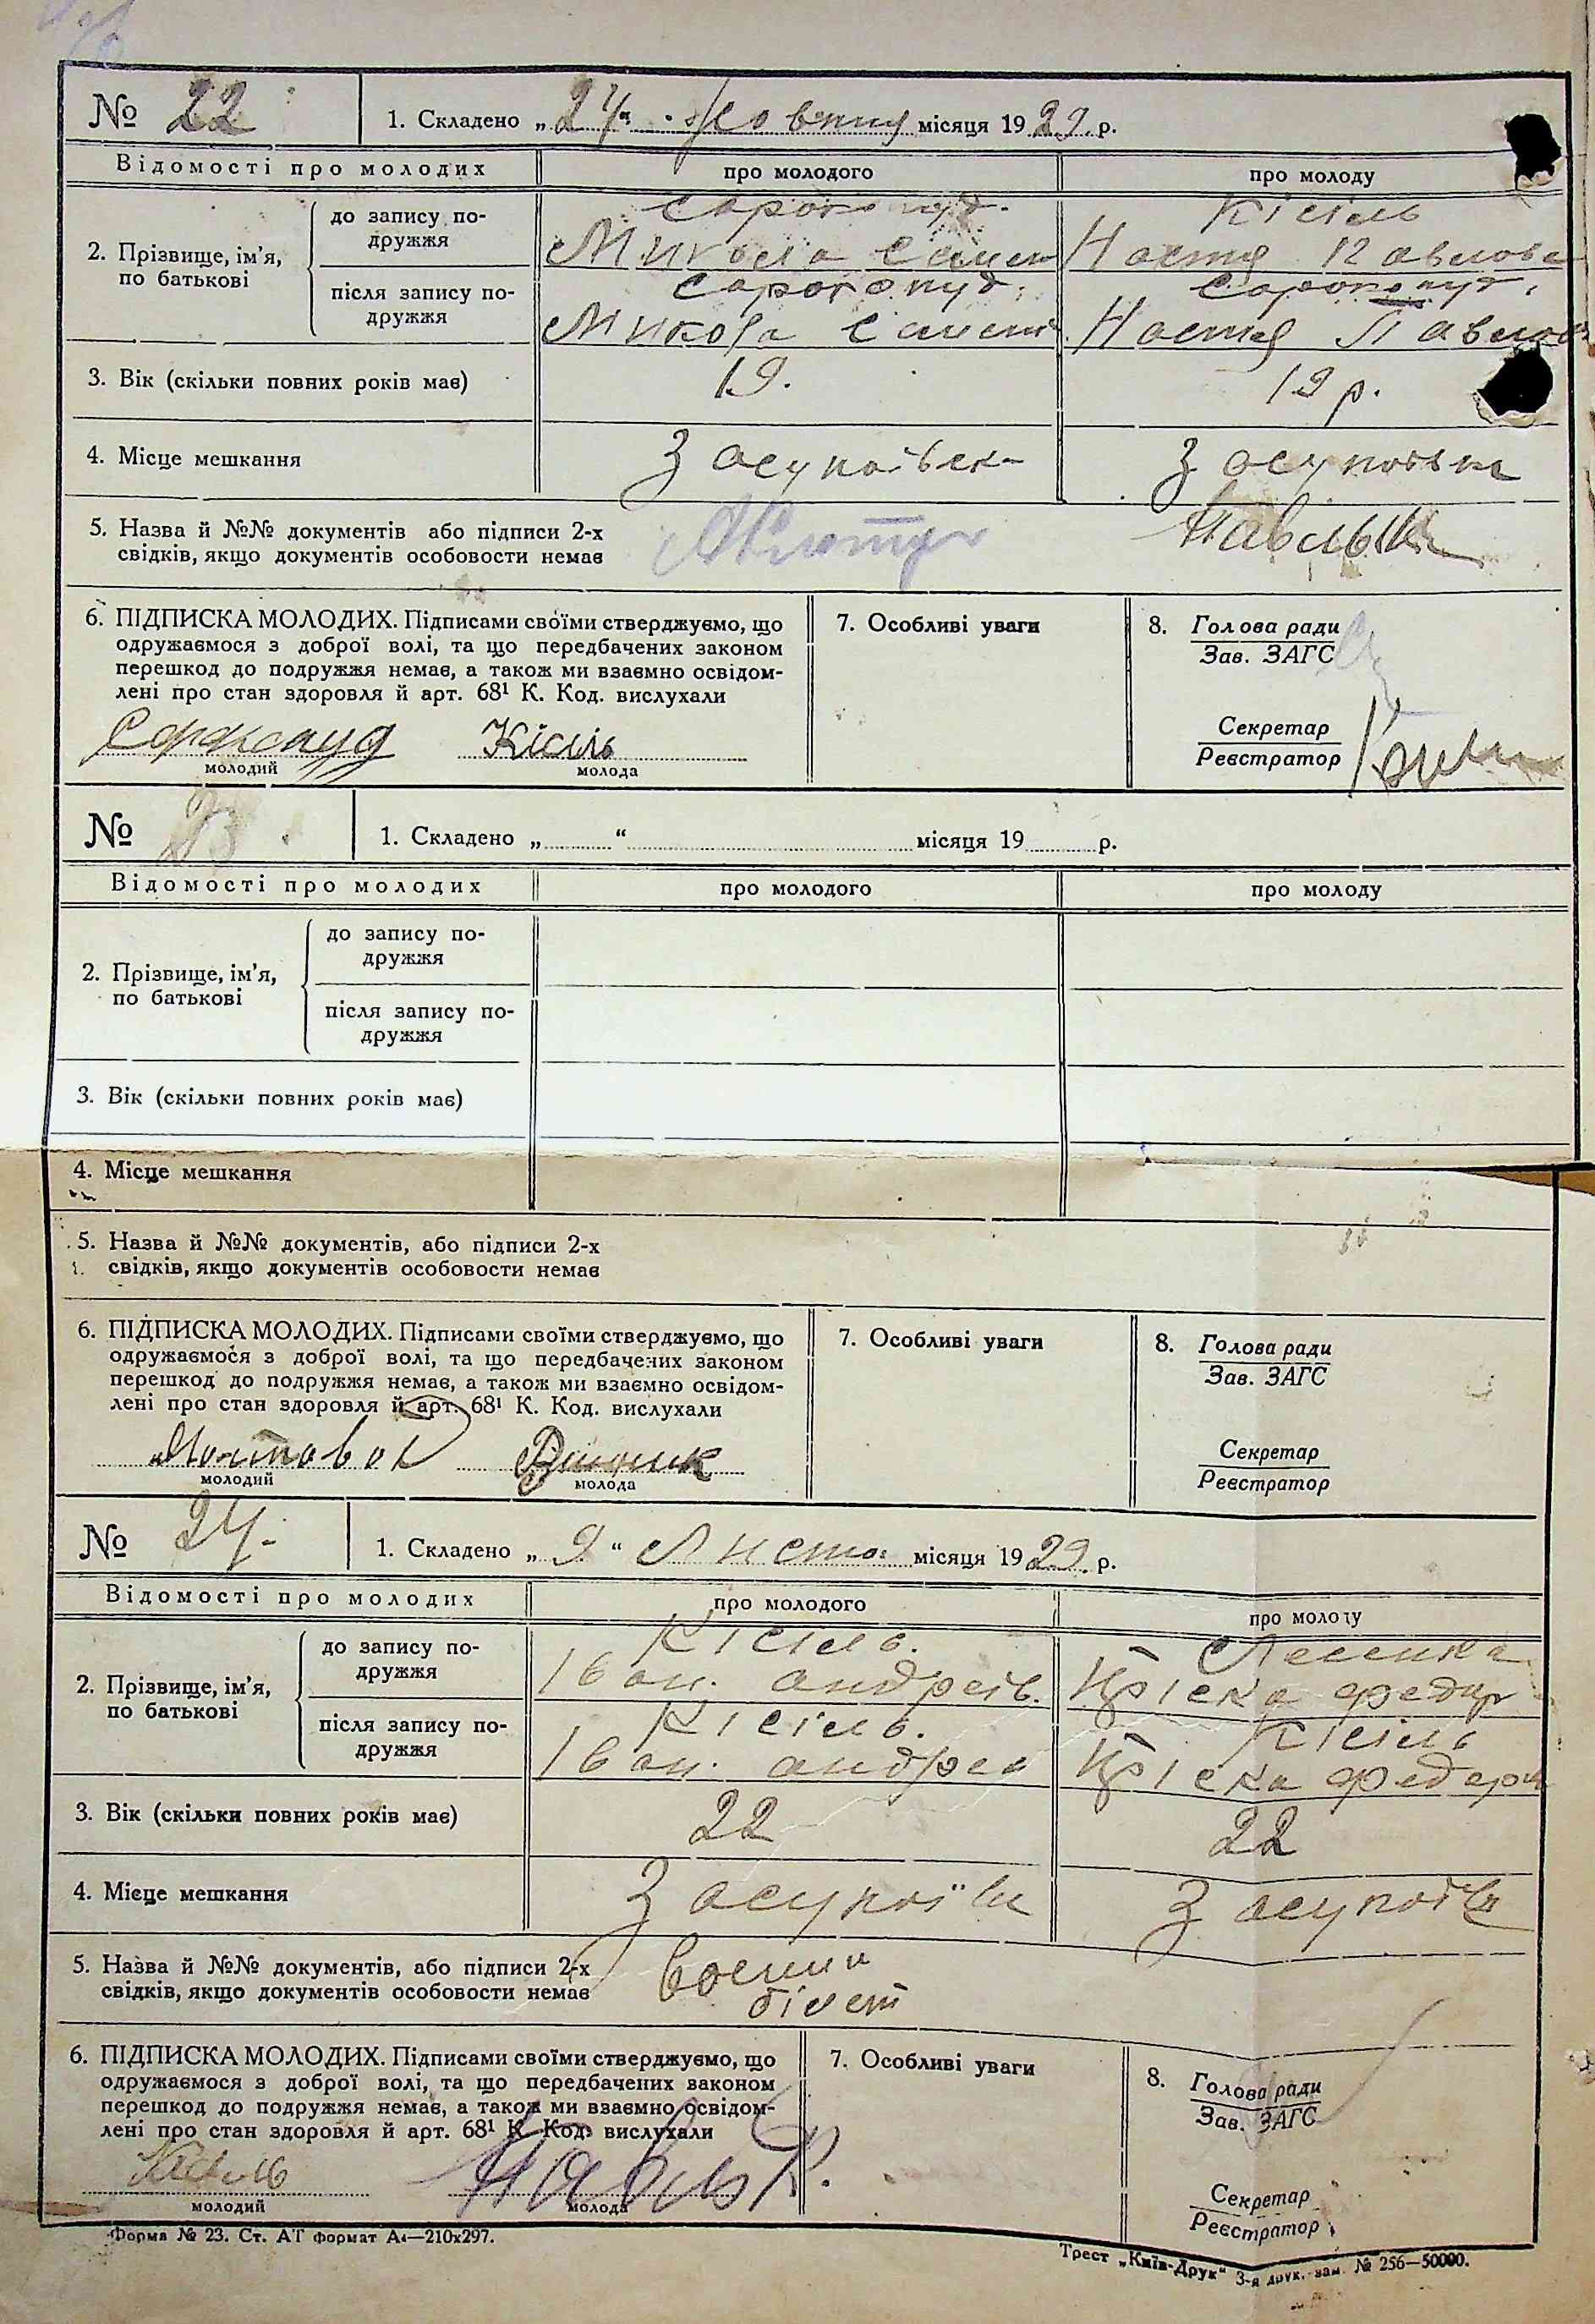 № 22
1. Складено „24“ Жовтня місяця 1929 р.
Відомості про молодих про молодого про молоду
2. Прізвище, ім’я, по батькові
до запису по-
дружжя
Сорокопуд. Кісіль
Микола Семен Настя Павлова
після запису по-
дружжя
Сорокопуд. Сорокопуд.
Микола Семен Настя Павлов
3. Вік (скільки повних років має) 19. 19 р.
4. Місце мешкання Засупоівка Засупоівка
5. Назва й №№ документів або підписи 2-х
свідків, якщо документів особовости немає
Павлик
6. ПІДПИСКА МОЛОДИХ. Підписами своїми стверджуємо, що
одружаємося з доброї волі, та що передбачених законом
перешкод до подружжя немає, а також ми взаємно освідом-
лені про стан здоровля й арт. 68¹ К. Код. вислухали
Кісіль
молодий молода
7. Особливі уваги
8. Голова ради
Зав. ЗАГС
Секретар
Реєстратор
№ 23
1. Складено „ “ місяця 19 р.
Відомості про молодих про молодого про молоду
2. Прізвище, ім’я,
по батькові
до запису по-
дружжя
після запису по-
дружжя
3. Вік (скільки повних років має)
4. Місце мешкання
5. Назва й №№ документів, або підписи 2-х
свідків, якщо документів особовости немає
6. ПІДПИСКА МОЛОДИХ. Підписами своїми стверджуємо, що
одружаємося з доброї волі, та що передбачених законом
перешкод до подружжя немає, а також ми взаємно освідом-
лені про стан здоровля й арт. 68¹ К. Код. вислухали
молодий молода
7. Особливі уваги
8. Голова ради
Зав. ЗАГС
Секретар
Реєстратор
№ 24.
1. Складено „9“ Листо місяця 1929 р.
Відомості про молодих про молодого про молоду
2. Прізвище, ім’я,
по батькові
до запису по-
дружжя
Кісіль.
Іван. андреів. федор
після запису по-
дружжя
Кісіль. Кісіль
Іван. андреі федор
3. Вік (скільки повних років має) 22 22
4. Місце мешкання Засупоїв Засупоїв
5. Назва й №№ документів, або підписи 2-х
свідків, якщо документів особовости немає
Воєнни
білет
6. ПІДПИСКА МОЛОДИХ. Підписами своїми стверджуємо, що
одружаємося з доброї волі, та що передбачених законом
перешкод до подружжя немає, а також ми взаємно освідом-
лені про стан здоровля й арт. 68¹ К. Код. вислухали
Кісіль Павлик.
молодий молода
7. Особливі уваги
8. Голова ради
Зав. ЗАГС
Секретар
Реєстратор
Форма № 23. Ст. АТ формат А4—210х297.
Трест „Київ-Друк“ 3-я друк. зам. № 256—50000.